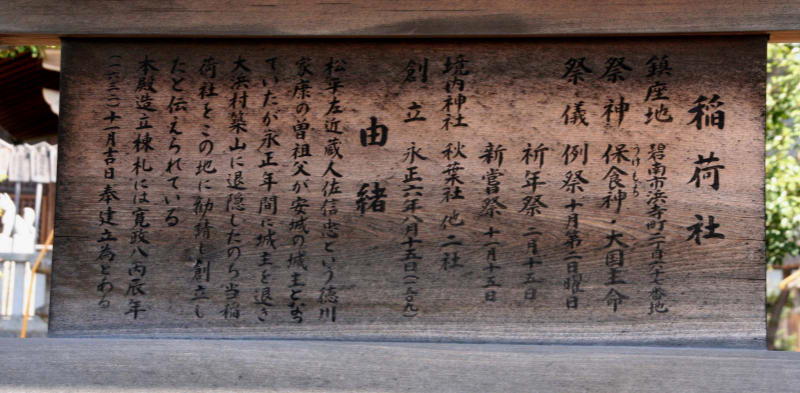 稲荷社
鎮座地 碧南市浜寺町二丁目
祭神 保食神・大国主命
うけもち
祭儀 例祭 十月第二日曜日
祈年祭 二月十五日
新嘗祭 十一月十五日
境内神社 秋葉社 他二社
創立 永正六年八月十五日(一五〇九)
由緒
松平左近蔵人佐信忠という徳川
家康の曽祖父が安城の城主となっ
ていたが永正年間に城主を退き
大浜村築山に退隠したのち当稲
荷社をこの地に勧請し創立し
たと伝えられている
本殿造立棟札には寛政八丙辰年
十一月吉日奉建立為とある